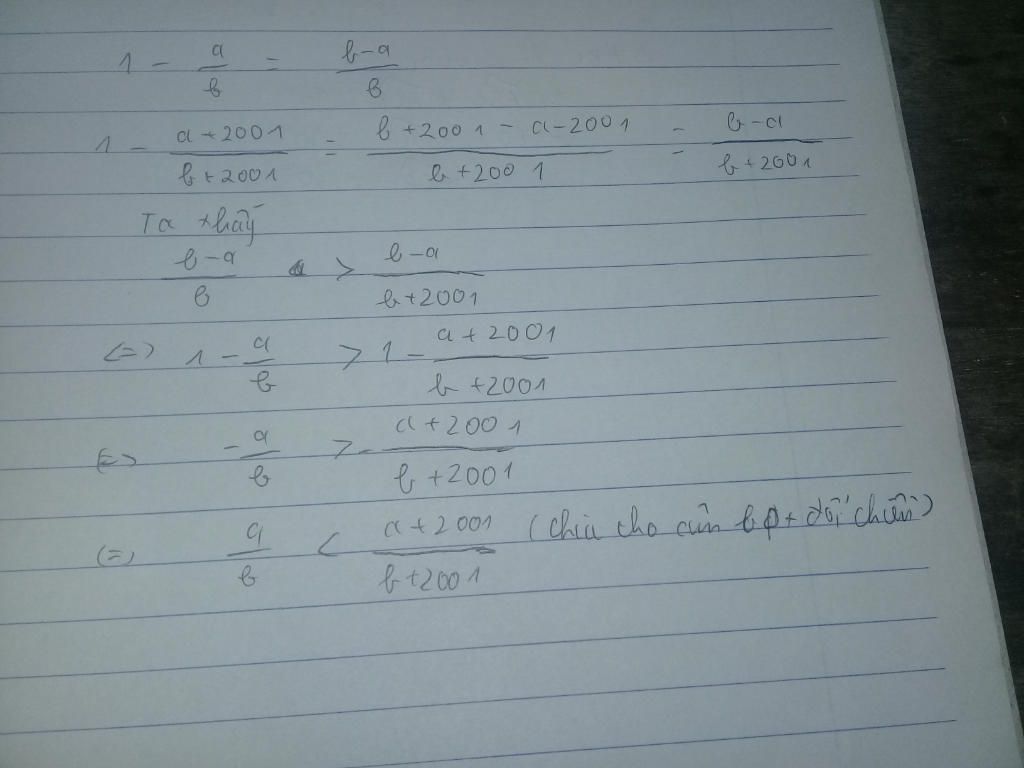 1 - a/b = b-a/b
1 - a+2001/b+2001 = b+2001-a-2001/b+2001 = b-a/b+2001
Ta thấy
b-a/b > b-a/b+2001
<=> 1 - a/b > 1 - a+2001/b+2001
<=> -a/b > - a+2001/b+2001
<=> a/b < a+2001/b+2001 (chia cho đổi chiều)